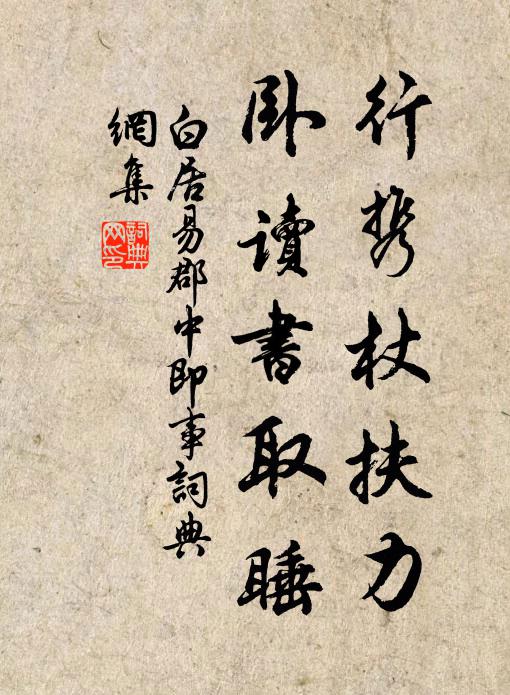 行携杖扶力
臥讀書取睡
白居易郡中即事詞典
網集
詞典
网印